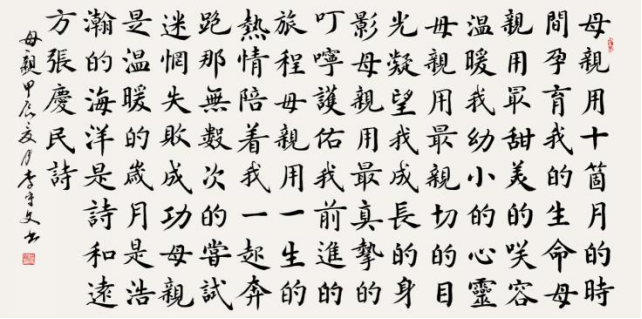 母親用十箇月的時
間孕育我的生命母
親用冣甜美的咲容
溫暖我幼小的心靈
母親用最親切的目
光凝望我成長的身
影母親用最真摯的
叮嚀護佑我前進的
旅程母親用一生的
熱情陪着我一起奔
跑那無數次的嘗試
迷惘失敗成功母親
是溫暖的歲月是浩
瀚的海洋是詩和遠
方張慶民詩
母親甲辰夏月李文书